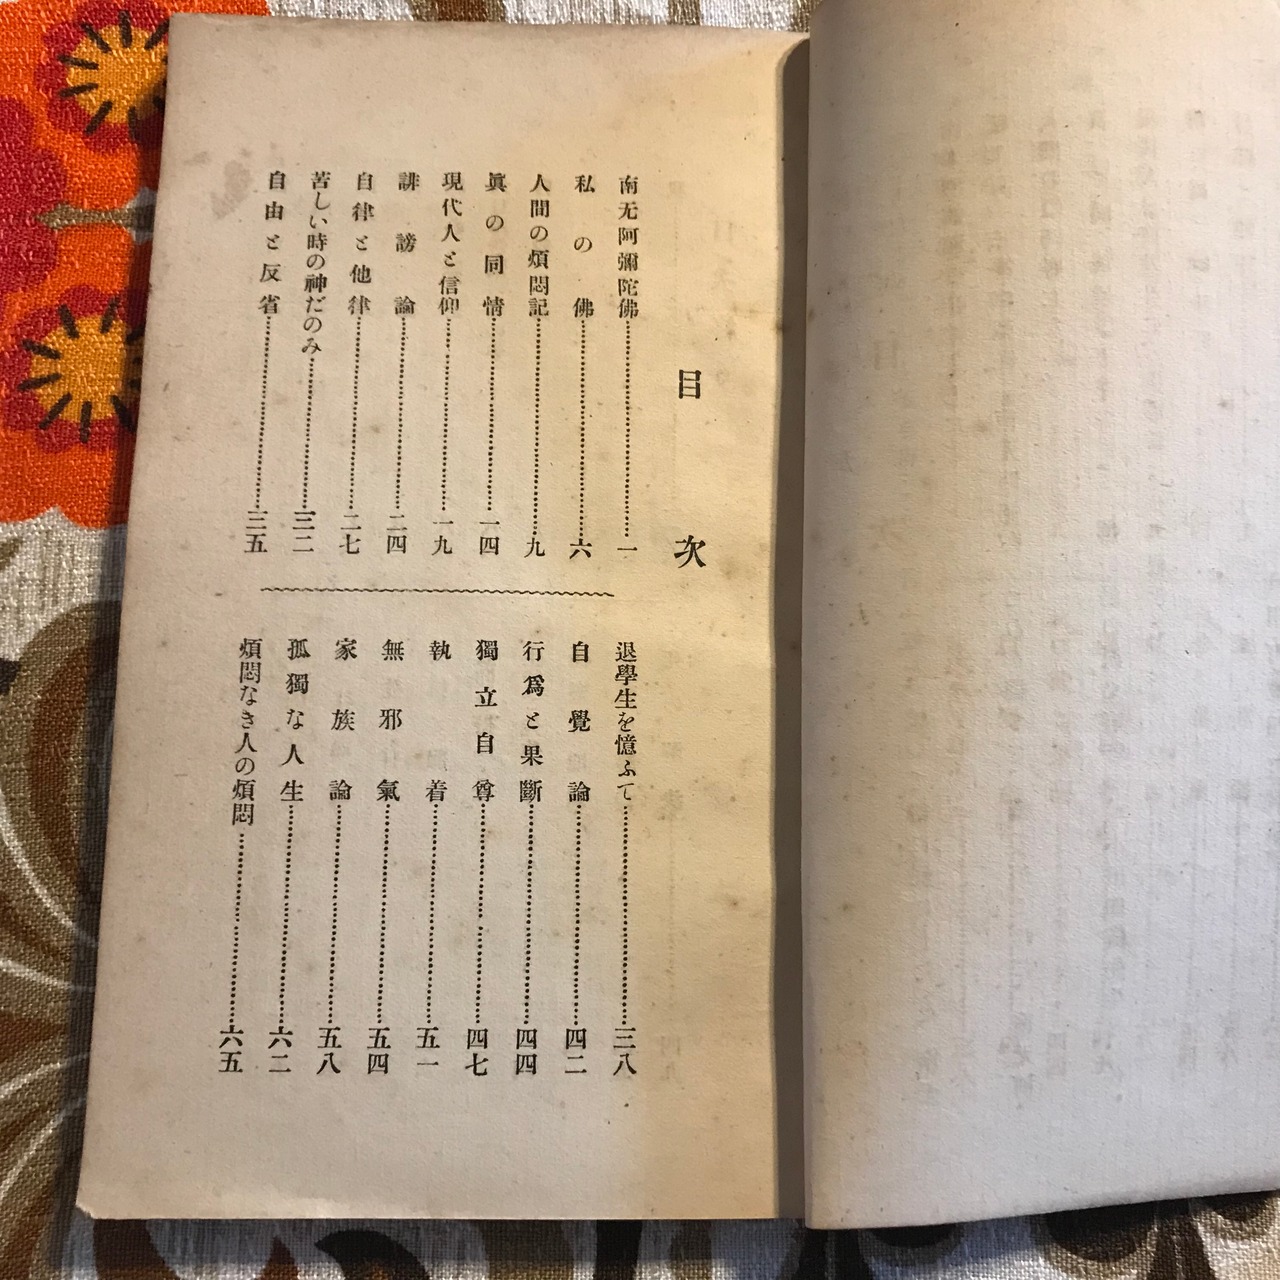 目次
南无阿彌陀佛 一
私の佛 六
人間の煩悶記 九
眞の同情 一四
現代人と信仰 一九
誹謗論 二四
自律と他律 二七
苦しい時の神だのみ 三二
自由と反省 三五
退學生を憶ふて 三八
自覺論 四二
行爲と果斷 四四
獨立自尊 四七
執着 五一
無邪氣 五四
家族論 五八
孤獨な人生 六二
煩悶なき人の煩悶 六五